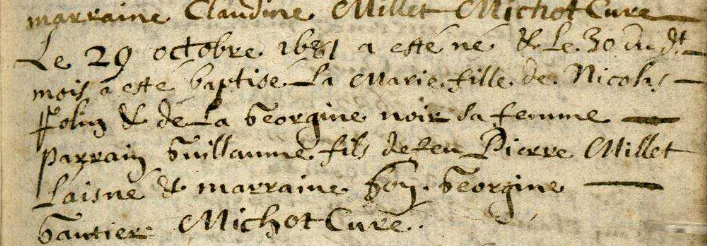 marraine Claudine Millet Michot Cure
Le 29 octobre 1681 a esté né & Le 30 du dt
mois a esté baptisé La Marie fille de Nicolas
& de La Georgine noir sa femme
parrain Guillaume fils de feu Pierre Millet
Laisne & marraine Georgine
Gautier Michot Cure.